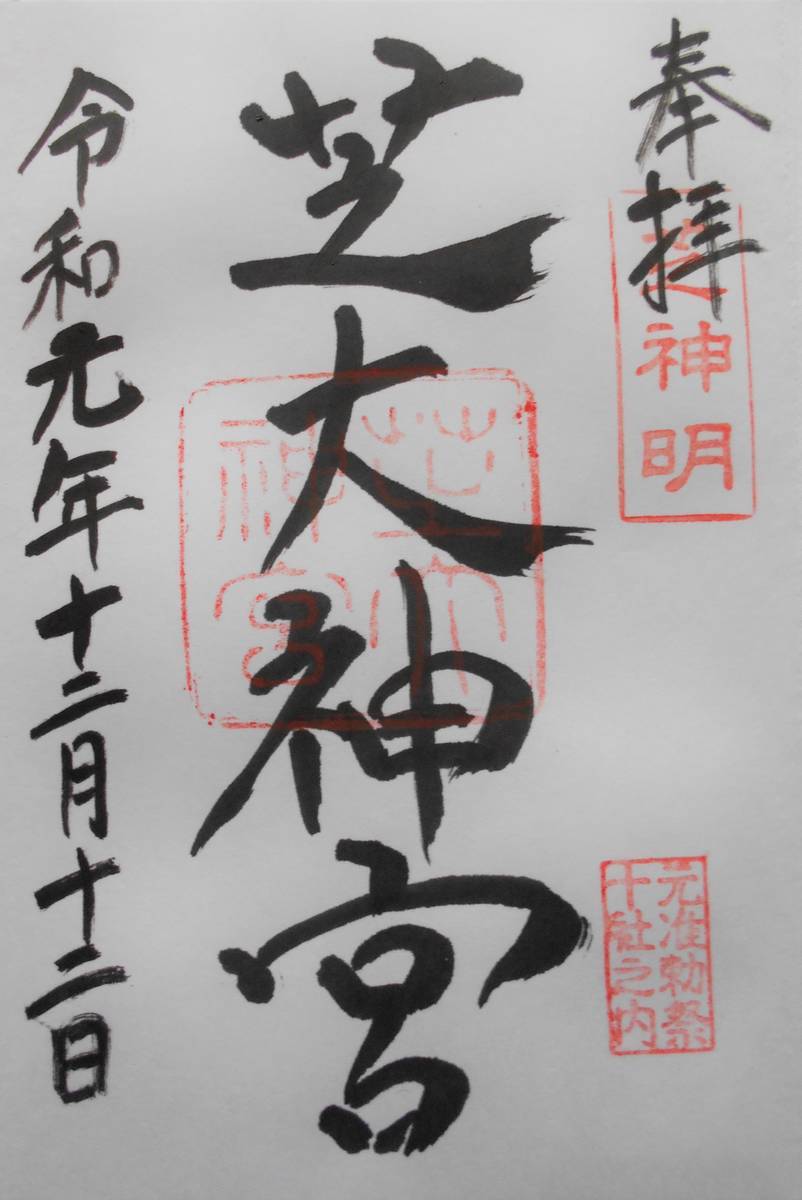 奉拝
芝神明
元准勅祭
十社之内
芝大神宮
芝大
神宮
令和元年十二月十二日